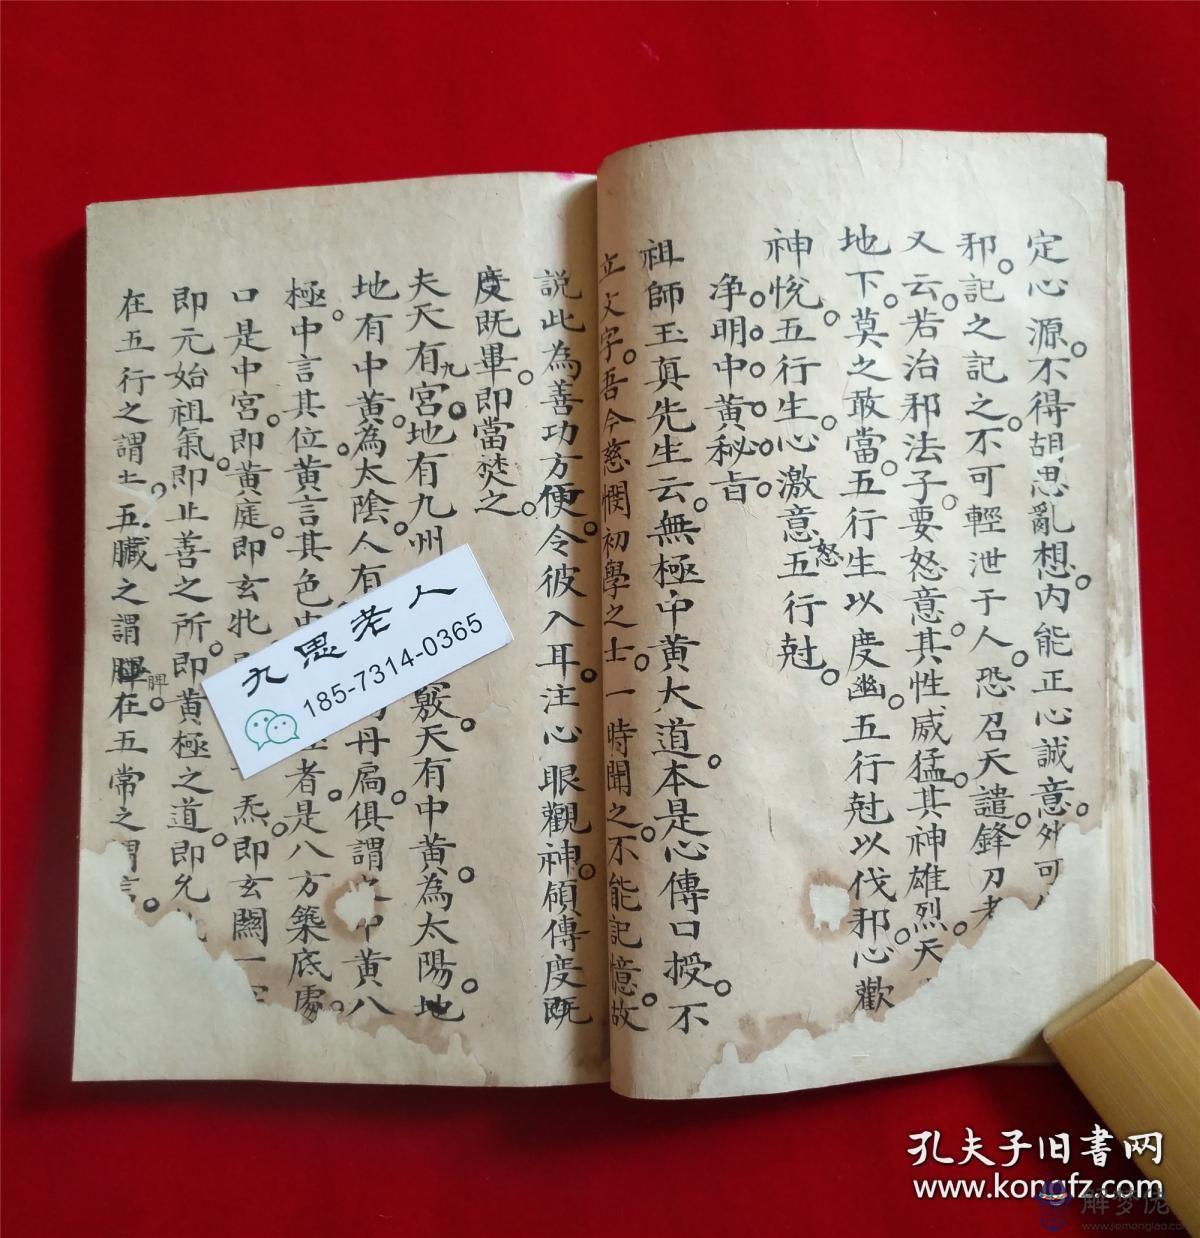 定心源。不得胡思亂想。内能正心誠意。外可
邪。記之記之。不可輕泄于人。恐召天譴。鋒刀
又云。若治邪法子。要怒意。其性威猛。其神雄烈。天
地下。莫之敢當。五行生以度幽。五行尅以伐邪。心歡
神悅。五行生。心激意怒五行尅。
淨。明。中。黃。秘。旨。
祖師玉真先生云。無極中黃大道。本是心傳口授。不
立文字。吾今慈憫初學之士。一時聞之。不能記憶。故
説此為善功方便。令彼入耳。注心眼觀神領傳度既
度既畢。即當焚之。
夫天有九宮。地有九州
竅。天有中黃。為太陽。地
地有中黃。為太陰。人有
丹扃。俱謂之中黃八
極。中言其位。黃言其色
者。是八方築底處。
口是中宮。即黃庭。即玄牝
炁。即玄關一
即元始祖氣。即止善之所。即黃極之道。即允
在五行之謂土。五臟之謂脾。在五常之謂言。
九思老人
185-7314-0365
孔夫子旧书网
www.kongfz.com
解梦佬
www.jiemenglao.com